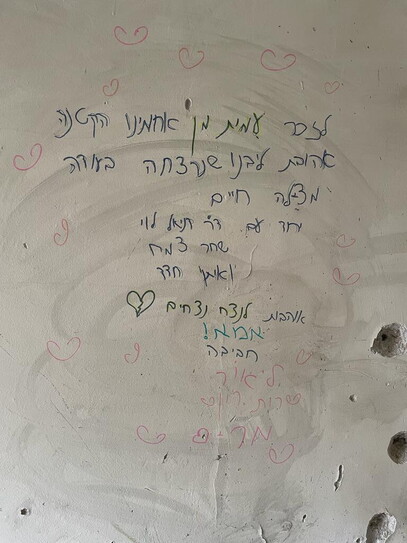 לזכר עמית מן אחותינו הקטנה
אהובת ליבנו שנרצחה בעודה
מצילה חיים
יחד עם ד"ר דניאל לוי
שחר צמח
ואיתן חדד
אוהבות לנצח נצחים
אמא!
חביבה
ליאור